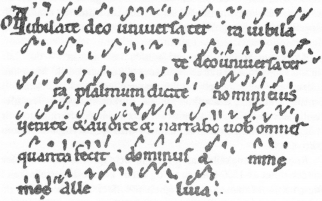 Iubilate deo uniuersa ter ra iubila
te deo uniuersa ter
ra psalmum dicite nomini eius
uenite & audite & narrabo uob omnes
quanta fecit dominus
alle luia